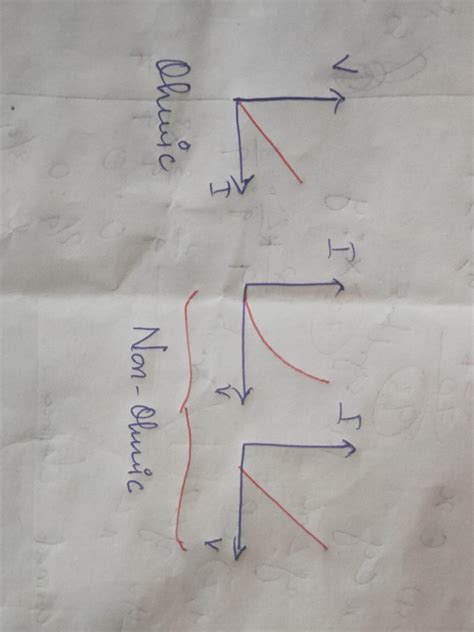 V
I
Ohmic
I
V
I
V
Non-Ohmic